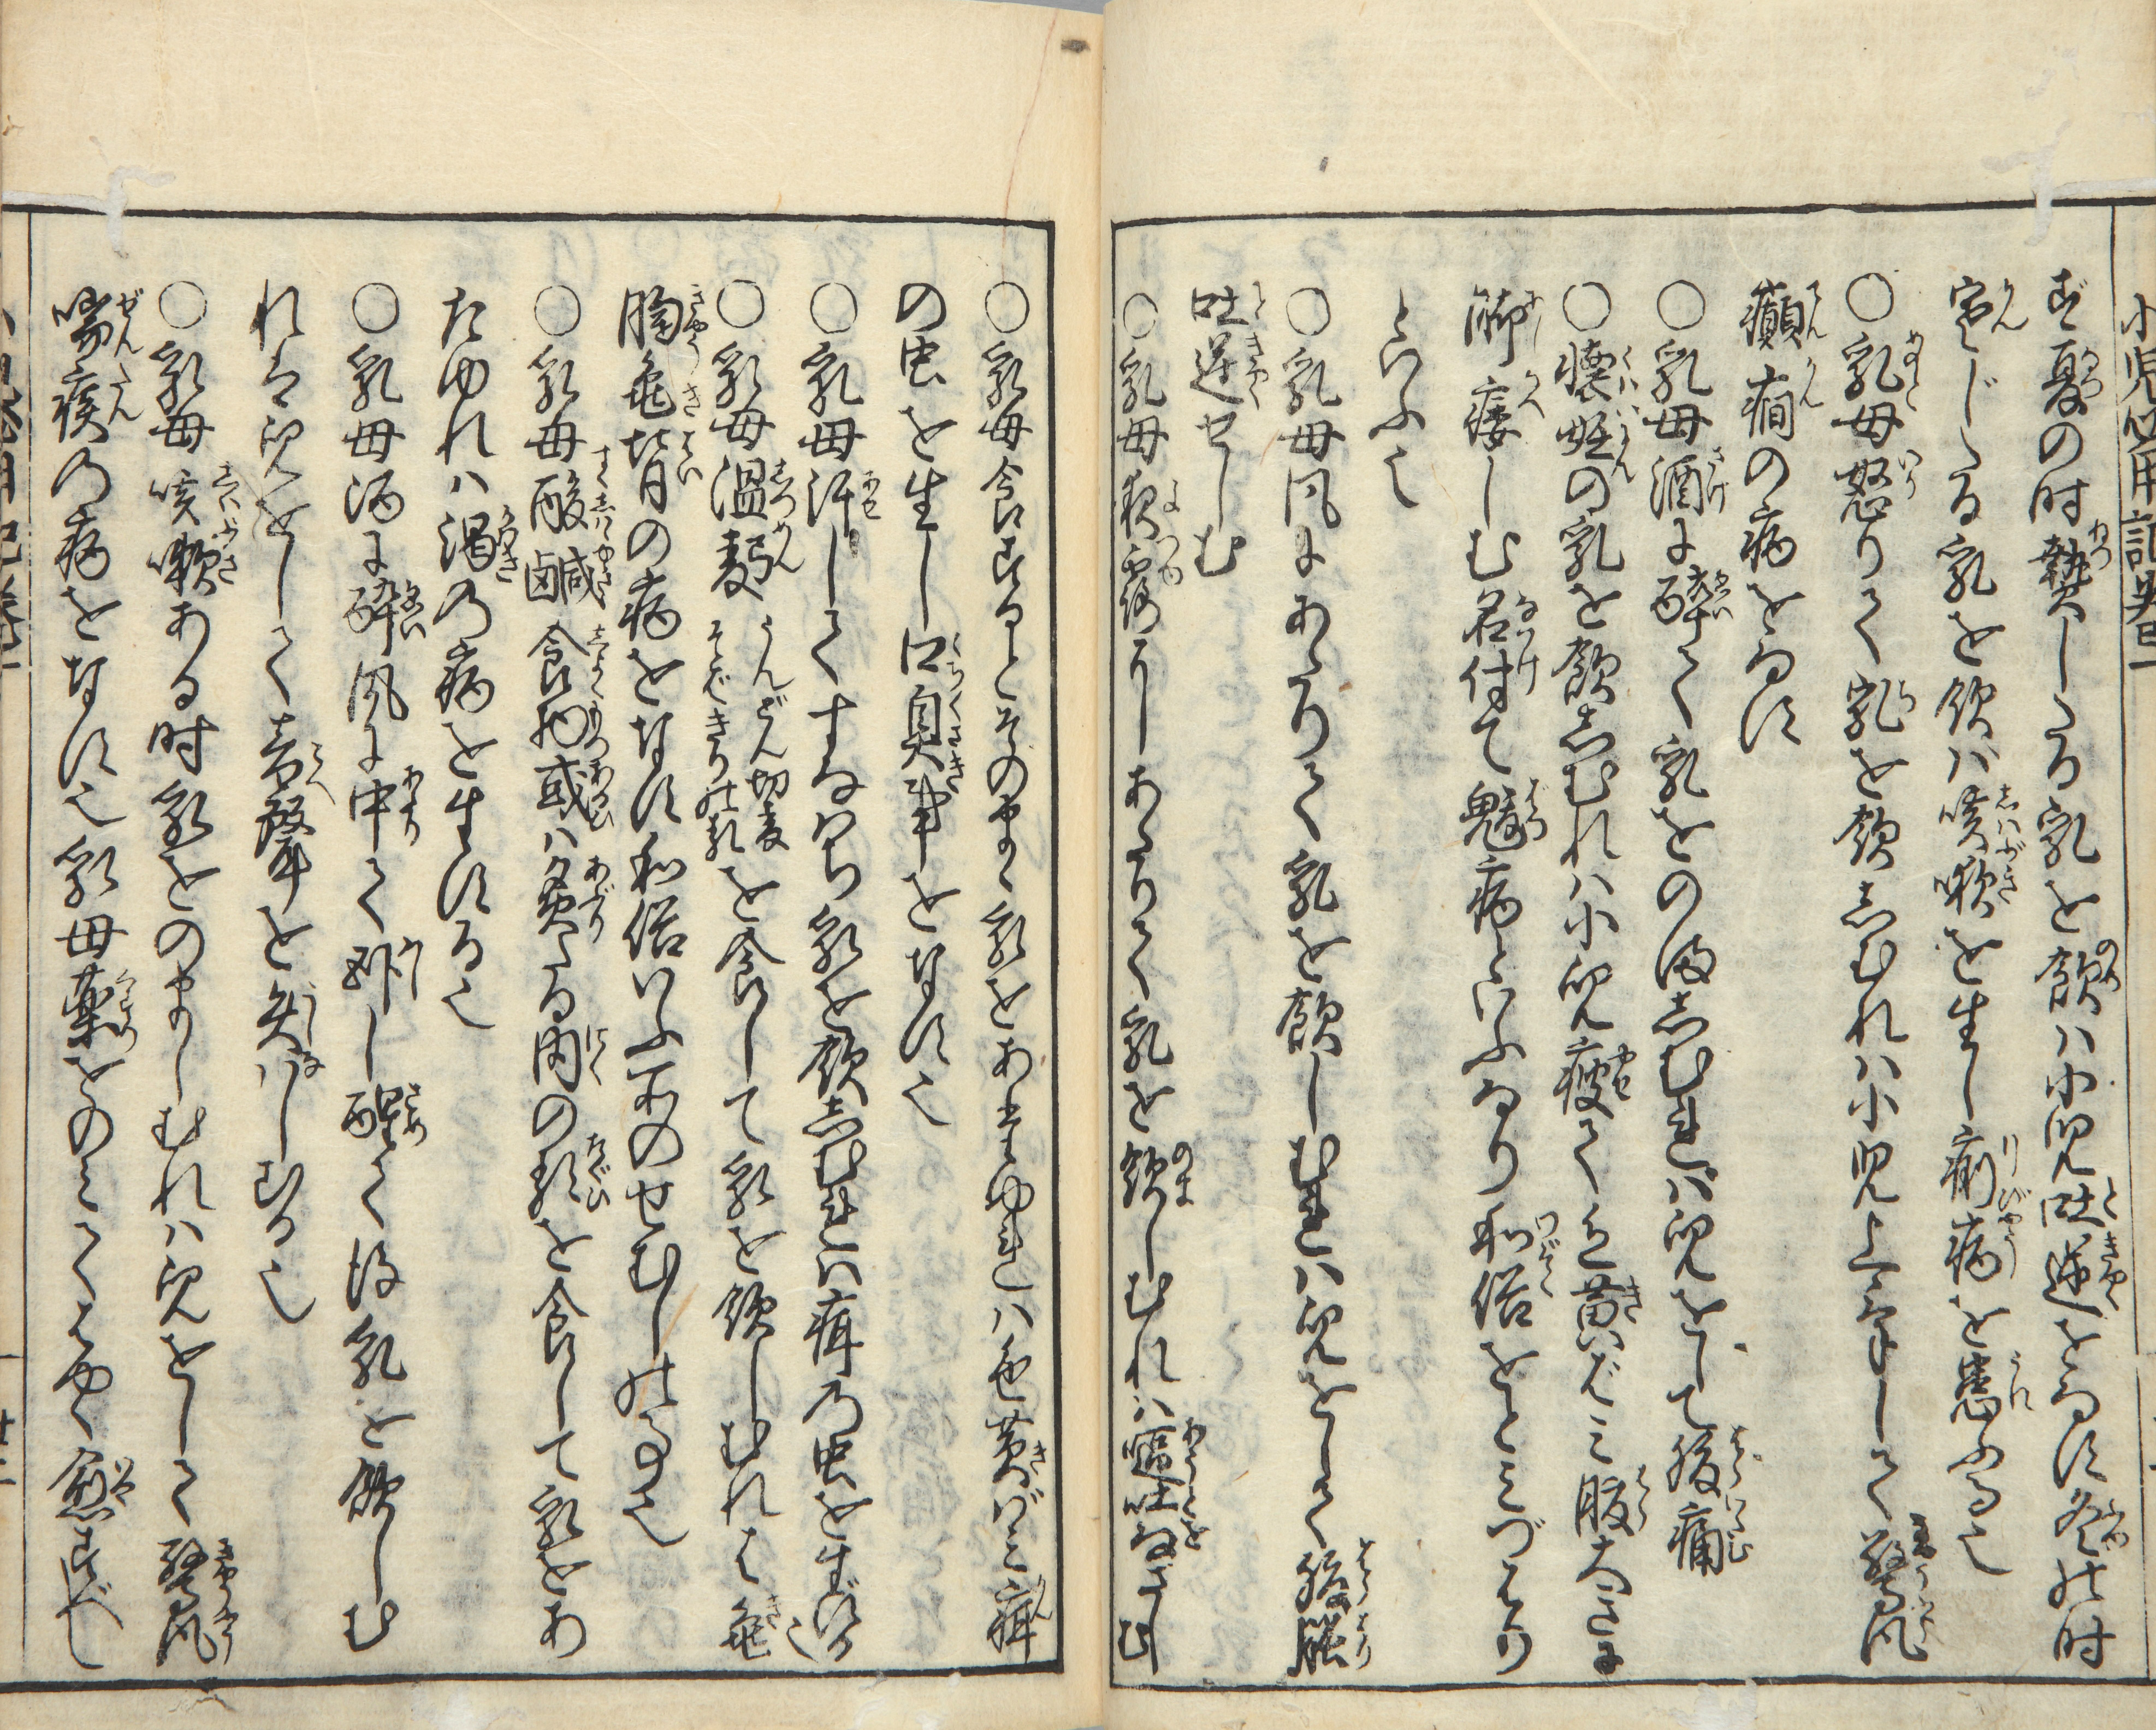 ず夏の時𤍠したる乳を飲ハ小児吐逆をなす冬の時
寒じたる乳を飲ハ咳嗽を生し痢病を患ふる也
○乳母怒りて乳を飲しむれハ小児上気して驚風
癲癇の病をなす
○乳母酒に酔て乳をのましむれバ児をして腹痛
○懐妊の乳を飲しむれハ小児疲て色黄ばミ腹大きに
脚痿しむ名付て魃病といふなり和俗をとミづはり
といふ也
○乳母風にあたりて乳を飲しむれハ児をして腹脹
吐逆せしむ
○乳母夜露にあたりて乳を飲しむれハ嘔吐なさしむ
○乳母食するとそのまゝ乳をあたゆれハ色黄ばミ疳
の虫を生し口臭事をなす也
○乳母汗してすなハち乳を飲しむれハ疳の虫を生ずる也
○乳母温麪うんどん切麦そばきりの類を食して乳を飲しむれは亀
胸亀背の病をなす和俗いふ所のせむしの事也
○乳母酸鹹食物或ハ炙たる肉の類を食して乳をあ
たゆれハ渇の病を生ずる也
○乳母酒に酔風に中て卧し醒て後乳を飲しむ
れは児をして音聲を失ハしむる也
○乳母咳嗽ある時乳をのましむれハ児をして驚風
喘痰の病をなす也乳母薬をのミてはやく愈すべし